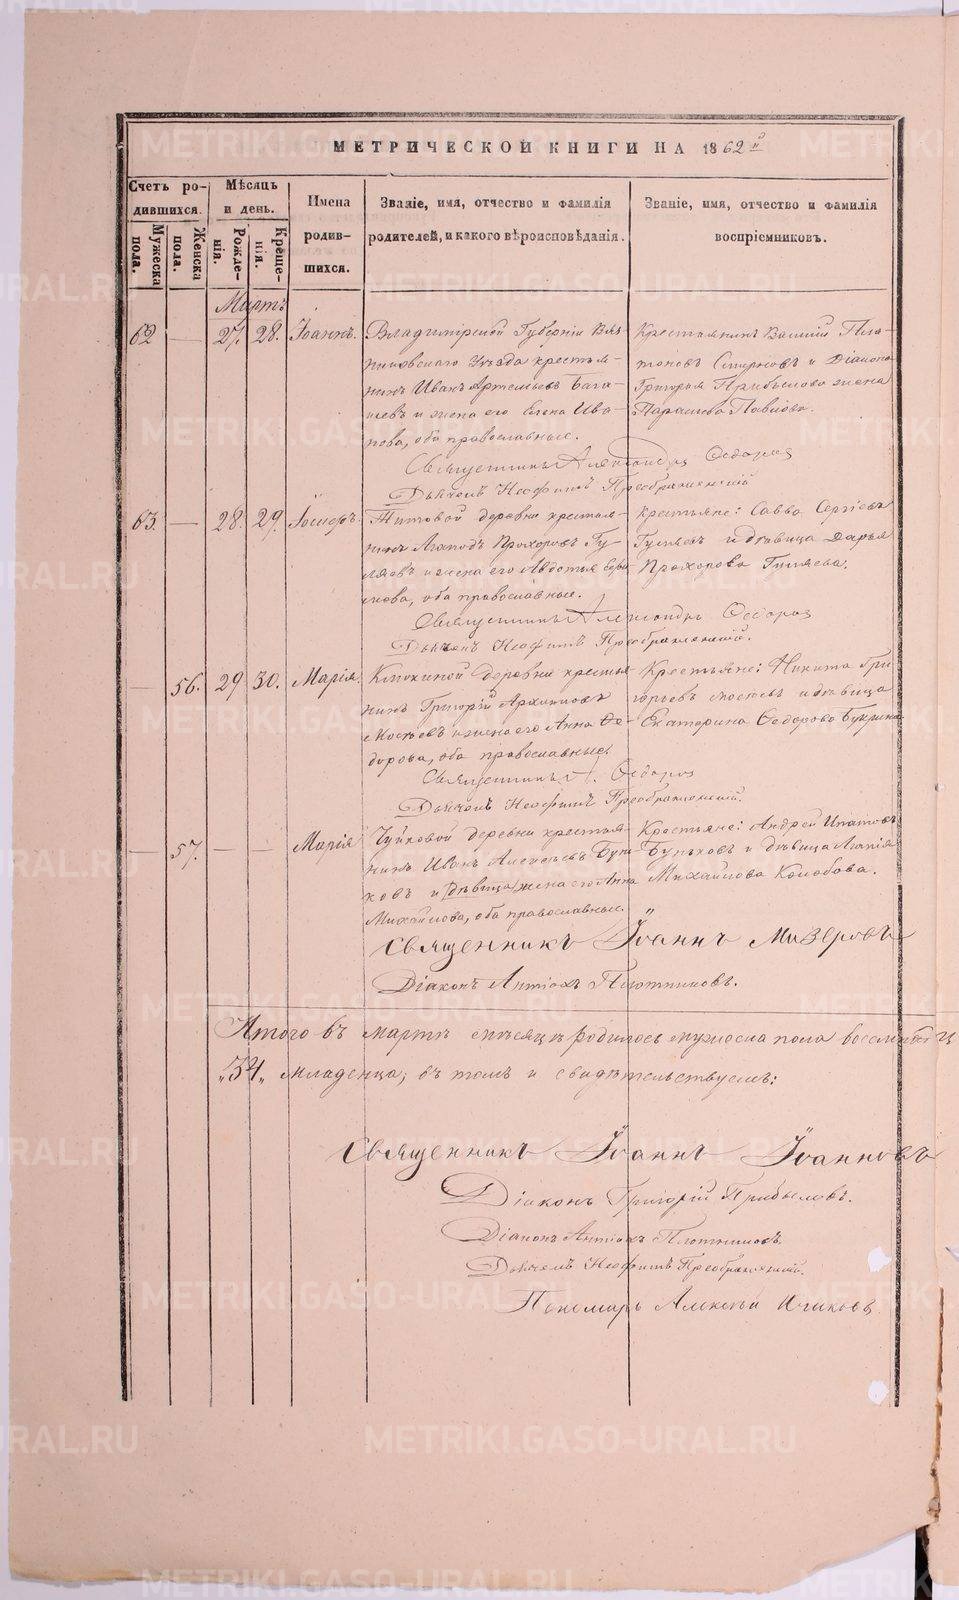 МЕТРИЧЕСКОЙ КНИГИ НА 1862й
Счетъ родившихся.
Мѣсяцъ и день.
Имена родившихся.
Званіе, имя, отчество и фамилія родителей, и какого вѣроисповѣданія.
Званіе, имя, отчество и фамилія воспріемниковъ.
Мужеска пола.
Женска пола.
Рожденія.
Крещенія.
Мартъ
62 — 27. 28. Іоаннъ.
Владимірской Губерніи Вяз-
никовскаго Уѣзда крестья-
нинъ Иванъ Артемьевъ
и жена его Елена Ива-
нова, оба православные.
Крестьянинъ Василій Пла-
тоновъ Смирновъ и Діакона
Григорья Прибылова жена
Параскева Павлова.
Священникъ Александръ Ѳедоров
Дьячекъ Неофитъ Преображенскій
63. — 28. 29. Іосифъ.
Титовой деревни крестья-
нинъ Прохоровъ Гу-
ляевъ и жена его Авдотья
оба православные.
Крестьяне: Савва Сергіевъ
Гуляевъ и дѣвица Дарья
Прохорова Гуляева.
Священникъ Александръ Ѳедоров
Дьячекъ Неофитъ Преображенскій.
— 56. 29 30. Марія
деревни крестья
нинъ Григорій Архиповъ
и жена его Анна Ѳе-
дорова, оба православные.
Крестьяне: Никита Гри
горьевъ и дѣвица
Екатерина Ѳедорова
Священникъ А. Ѳедоров
Дьячекъ Неофитъ Преображенскій.
— 57. — — Марія
Чуйковой деревни крестья-
нинъ Иванъ Алексѣевъ Бунь-
ковъ и дѣвица жена его Анна
Михайлова, оба православные.
Крестьяне: Андрей Ипатовъ
Буньковъ и дѣвица Агапія
Михайлова Колобова.
Священникъ Іоаннъ Мизеровъ
Діаконъ Антіохъ Плотниковъ.
Итого въ мартѣ мѣсяцѣ родилось мужеска пола
„34„ Младенца; въ томъ и свидѣтельствуемъ:
Священникъ Іоаннъ Іоанновъ
Діаконъ Григорій Прибыловъ.
Діаконъ Антіохъ Плотниковъ.
Дьячекъ Неофитъ Преображенскій.
Пономарь Алексѣй
METRIKI.GASO-URAL.RU